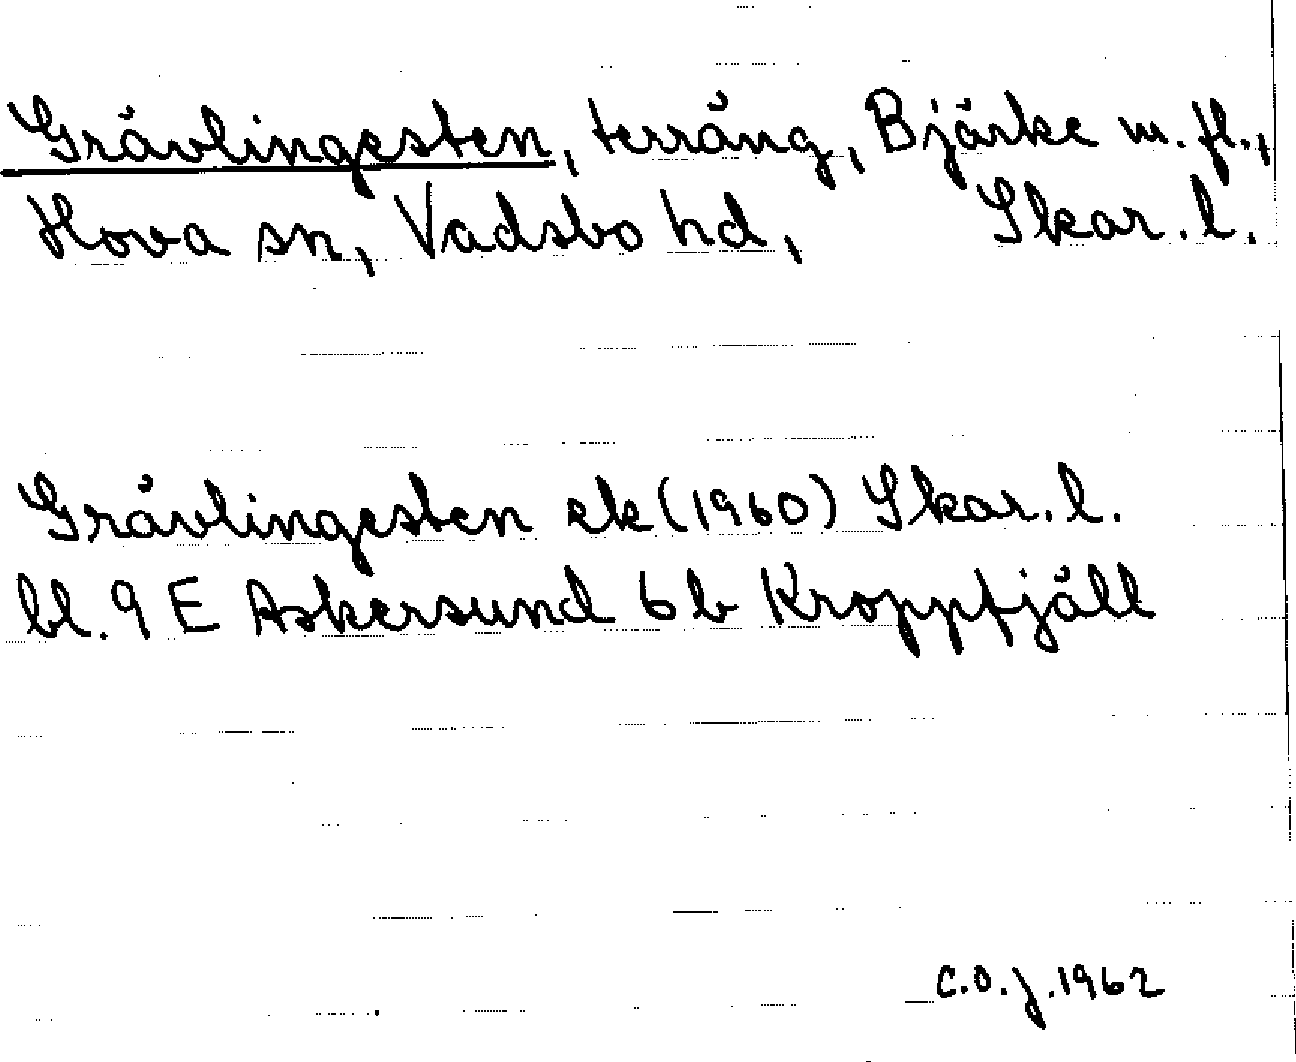 Grävlingesten, terräng, Bjärke m. fl.,
Hova sn, Vadsbo hd, Skar. l.
Grävlingesten ek (1960) Skar. l.
bl. 9 E Askersund 6 b Kroppfjäll
C.O.J. 1962